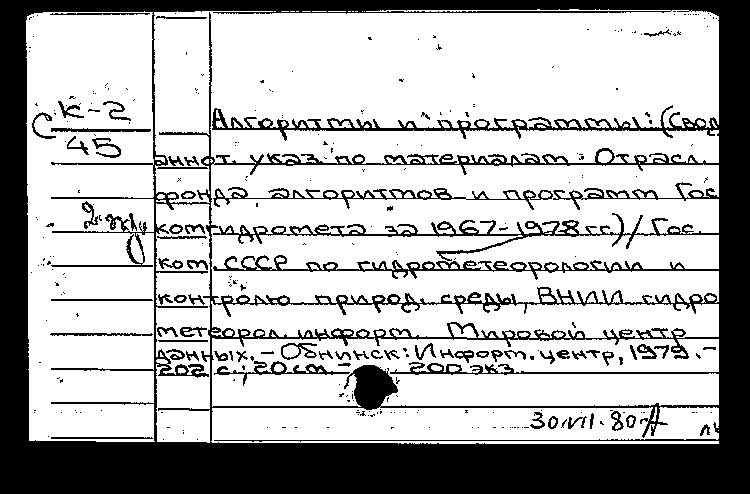 С К-2
45
Алгоритмы и программы: (Свод
аннот. указ по материалам Отрасл.
фонда алгоритмов и программ Гос
2 экз
комгидромета за 1967-1978 гг.) / Гос.
ком. СССР по гидрометеорологии и
контролю природ. среды, ВНИИ гидро
метеорол. информ. Мировой центр
данных. - Обнинск: Информ. центр, 1979. -
202 с.; 20 см. - 200 экз.
30.VII.80